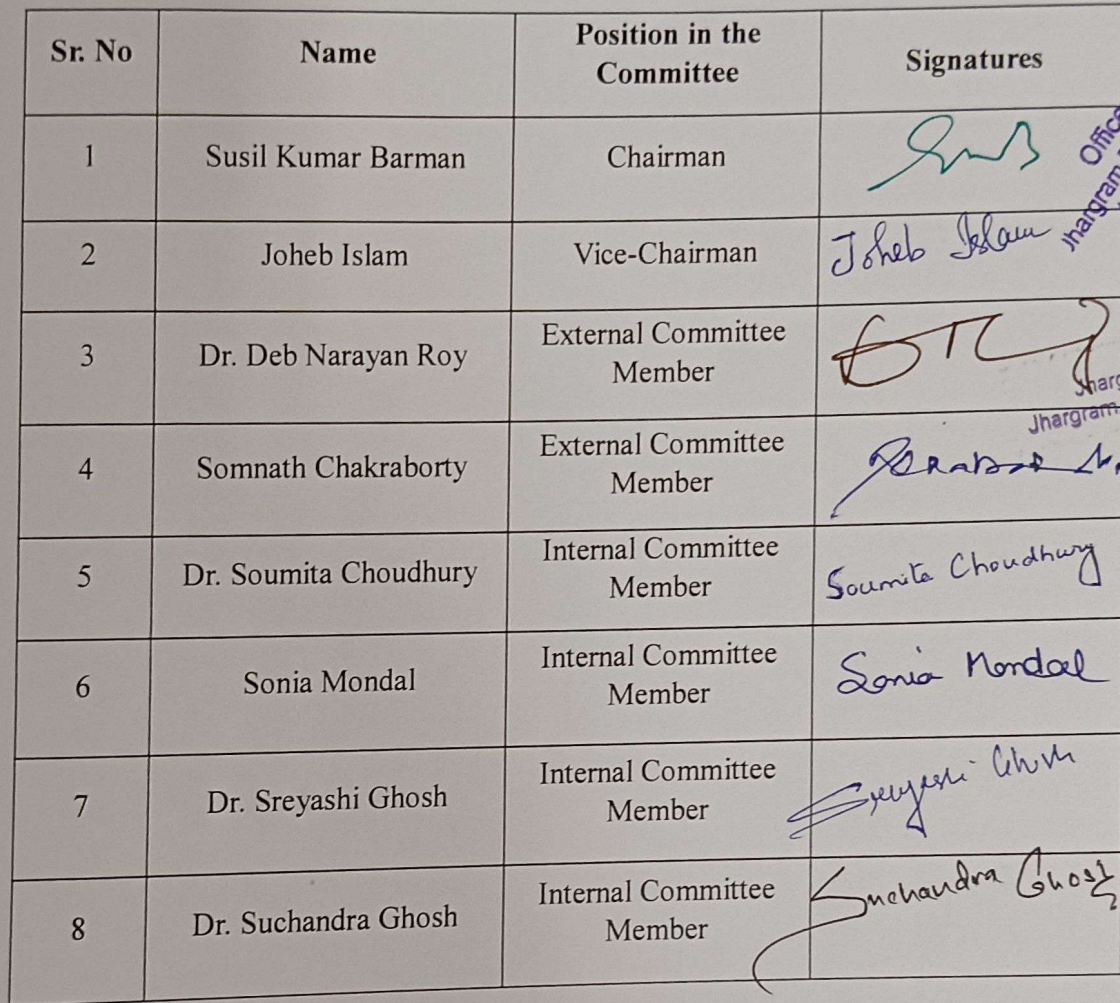 Sr. No Name Position in the Committee Signatures
1 Susil Kumar Barman Chairman
Office
Jhargram
2 Joheb Islam Vice-Chairman Joheb Islam
3 Dr. Deb Narayan Roy External Committee Member
Jhargram
4 Somnath Chakraborty External Committee Member
5 Dr. Soumita Choudhury Internal Committee Member Soumita Choudhury
6 Sonia Mondal Internal Committee Member Sonia Mondal
7 Dr. Sreyashi Ghosh Internal Committee Member Sreyashi Ghosh
8 Dr. Suchandra Ghosh Internal Committee Member Suchandra Ghosh